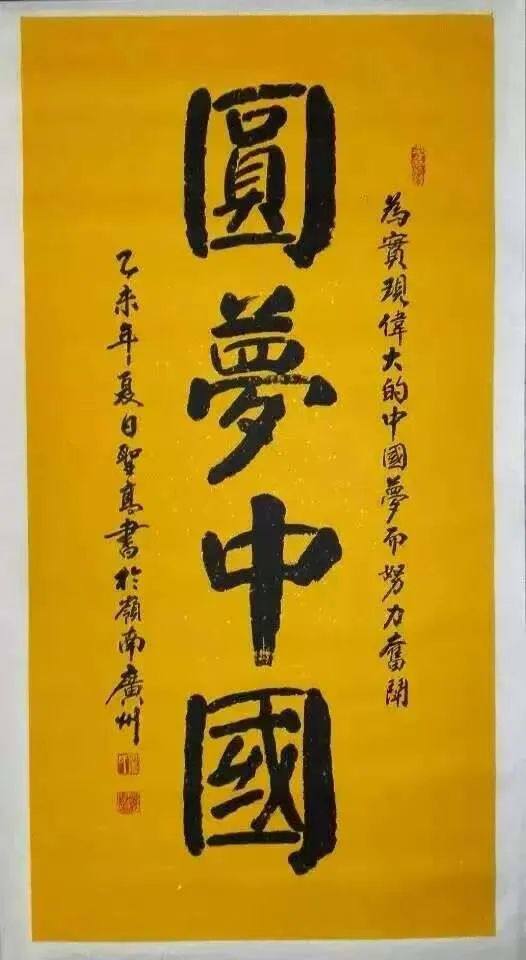 為實現偉大的中國夢而努力奮鬪
圓夢中國
乙未年夏日聖高書於嶺南廣州